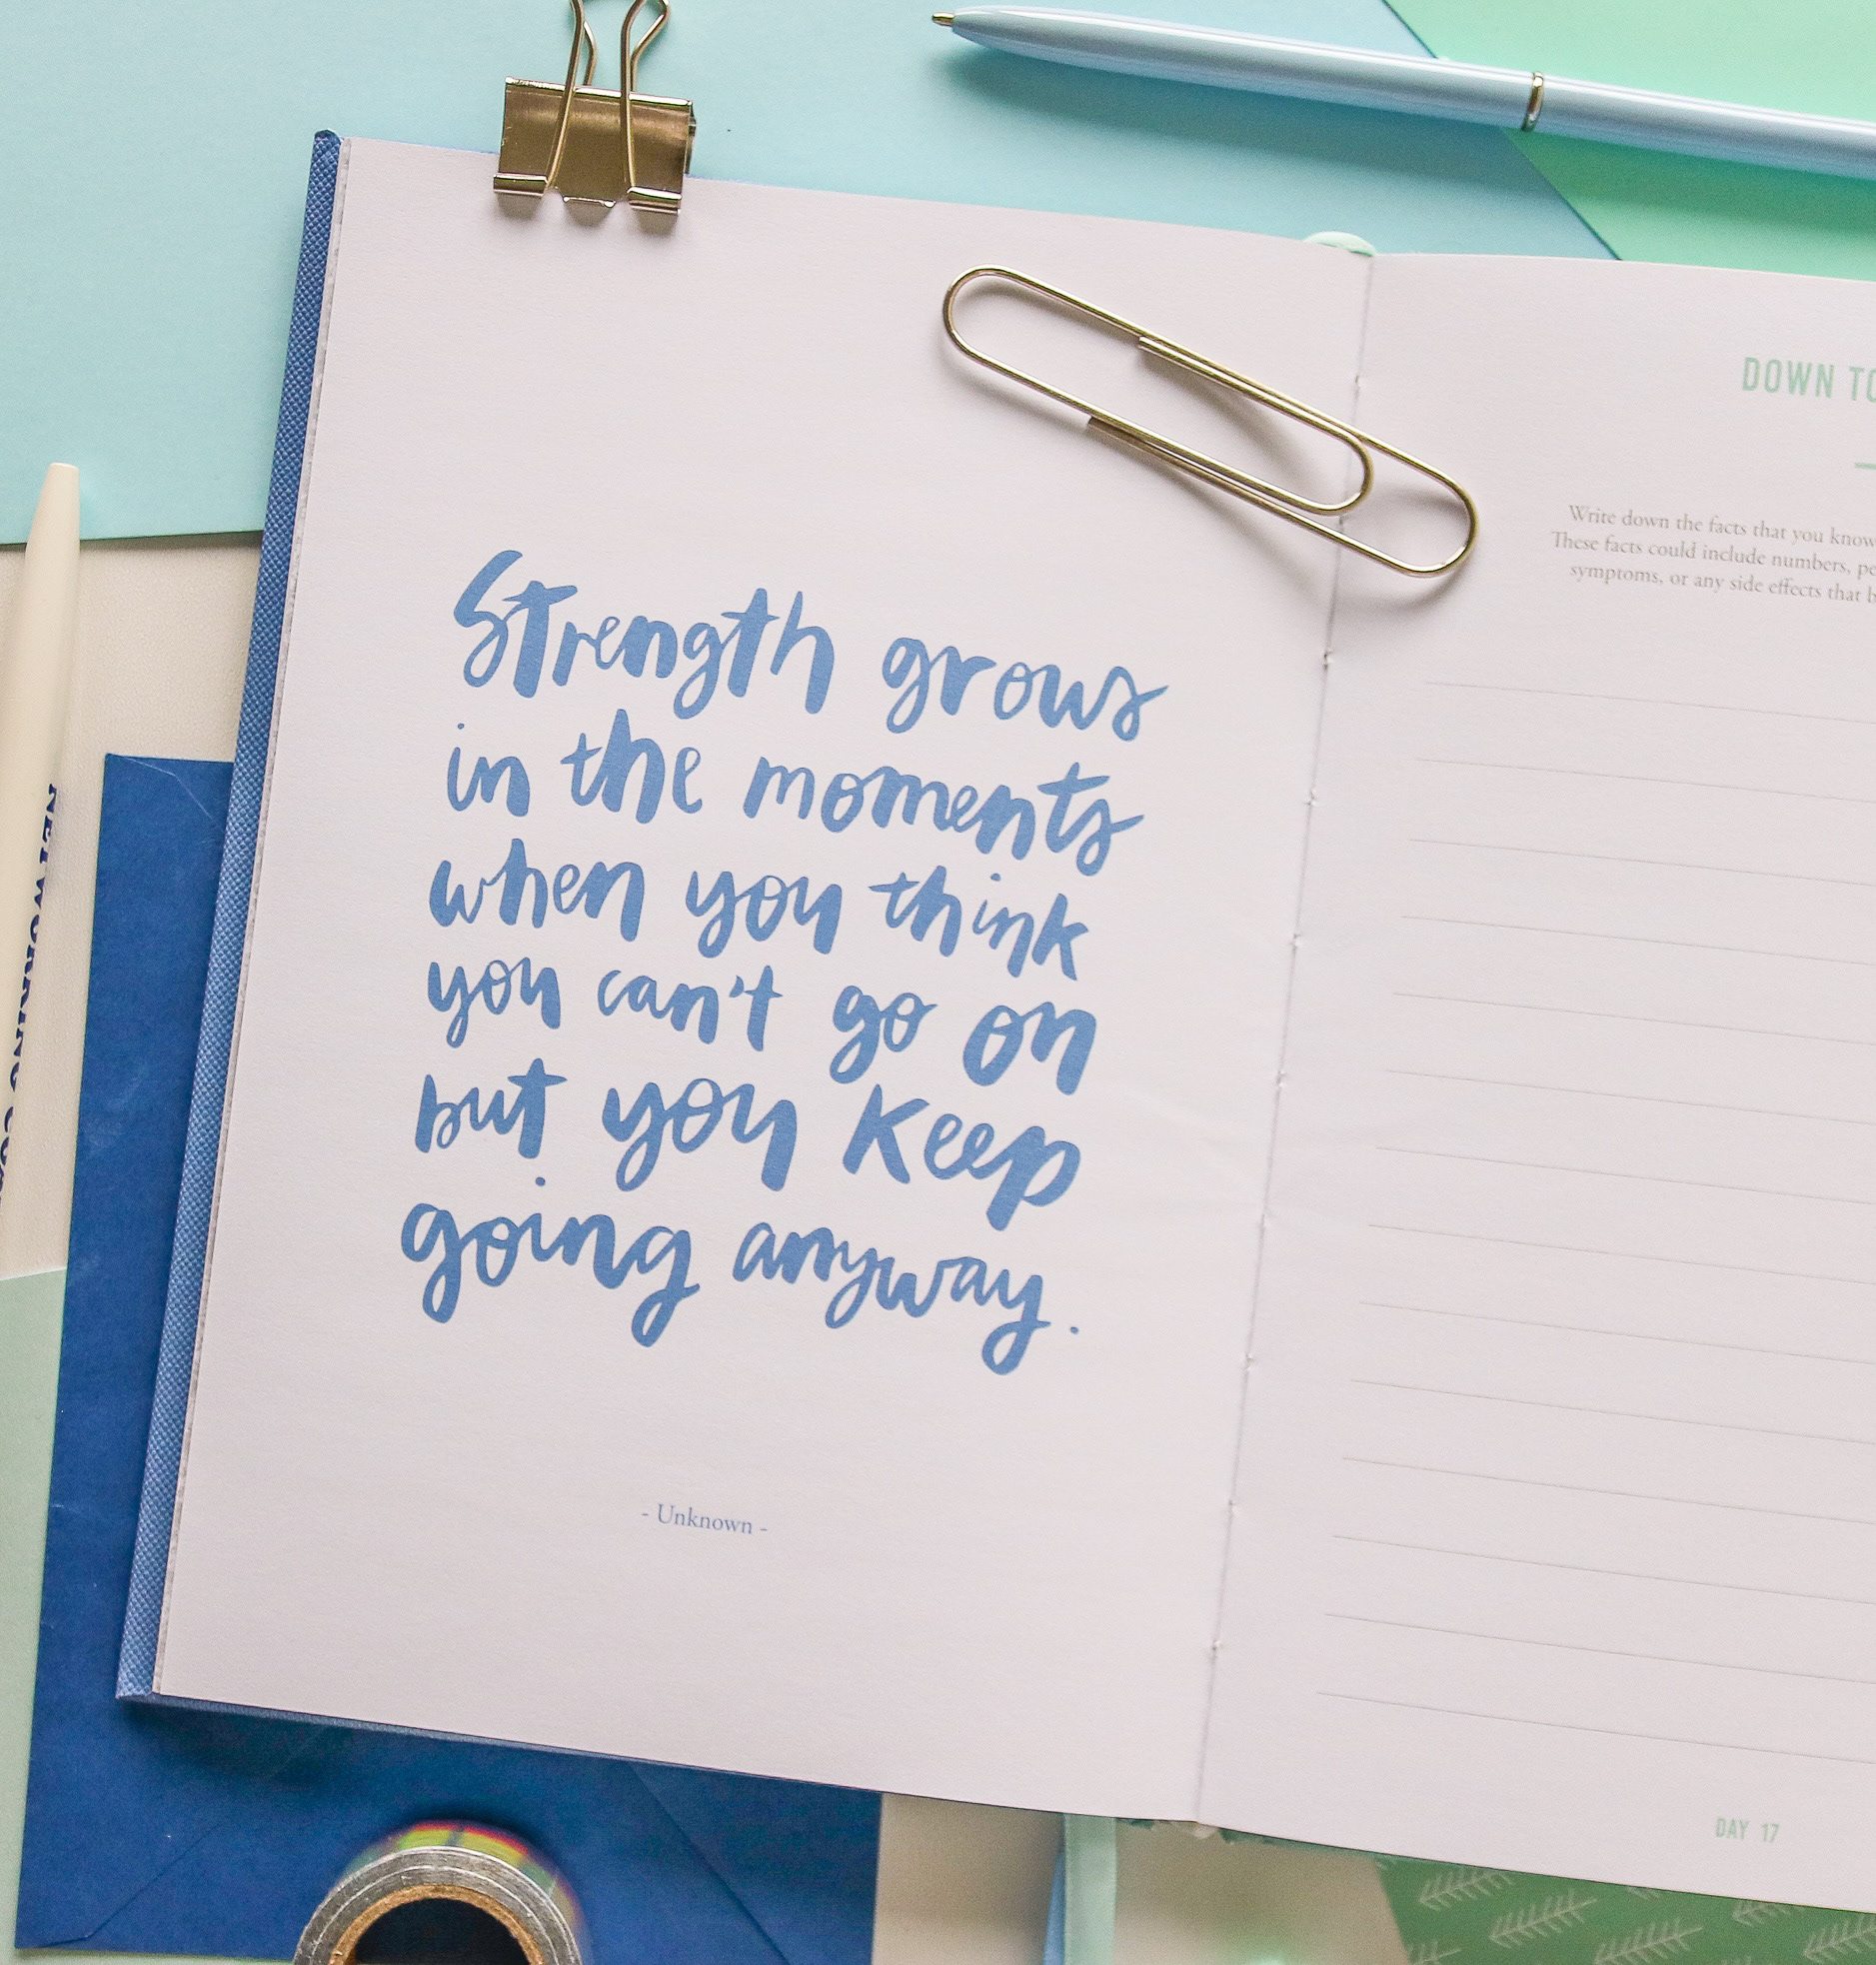 Strength grows
in the moments
when you think
you can't go on
but you keep
going anyway.
- Unknown -
DOWN
Write down the facts that you know
These facts could include numbers,
symptoms, or any side effects that
DAY 17